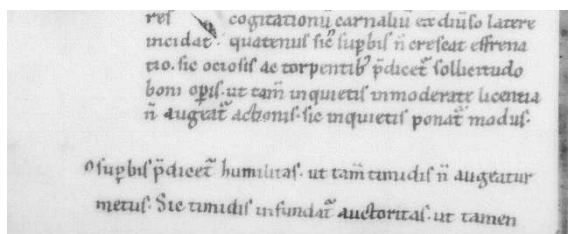 ref cogitationū carnaliū ex diũso latere
incidat· quatenuſ sic suꝑbiſ n̄ creſcat effrena
tio· sic ocioſiſ ac torpentibꝰ p̄dicet᷑ sollicitudo
boni oꝑiſ· ut tam̄ inquietiſ inmoderate licentia
n̄ augeat᷑ actioniſ· sic inquietiſ ponat᷑ moduſ·
suꝑbiſ p̄dicet᷑ humilitaſ· ut tam̄ timidiſ n̄ augeatur
metuſ· Sic timidiſ infundat᷑ auctoritaſ· ut tamen